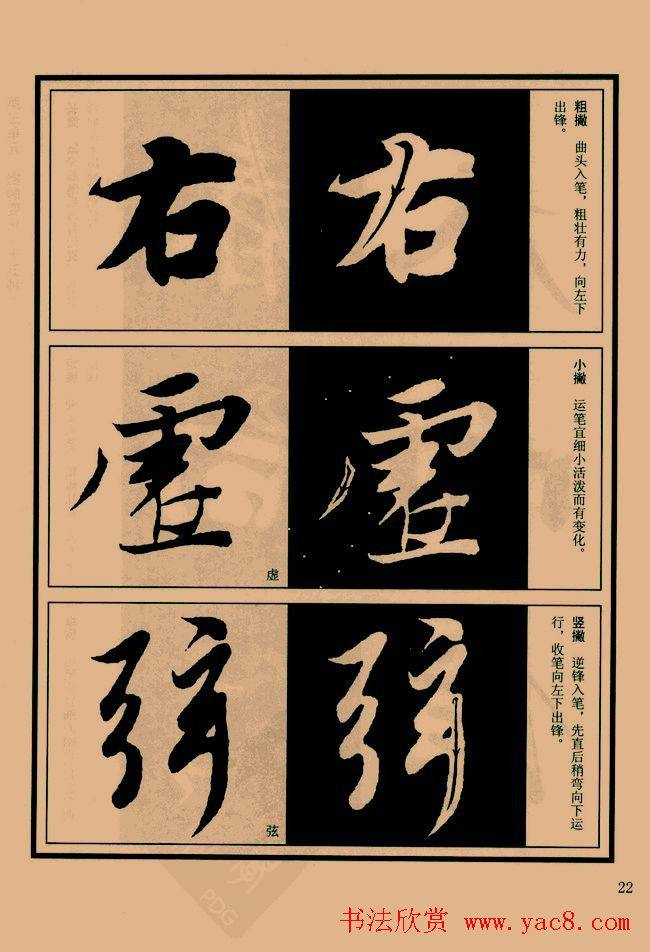 右
粗撇　曲头入笔，粗壮有力，向左下
出锋。
虚
小撇　运笔宜细小活泼而有变化。
弦
竖撇　逆锋入笔，先直后稍弯向下运
行，收笔向左下出锋。
22
书法欣赏 www.yac8.com
PDG